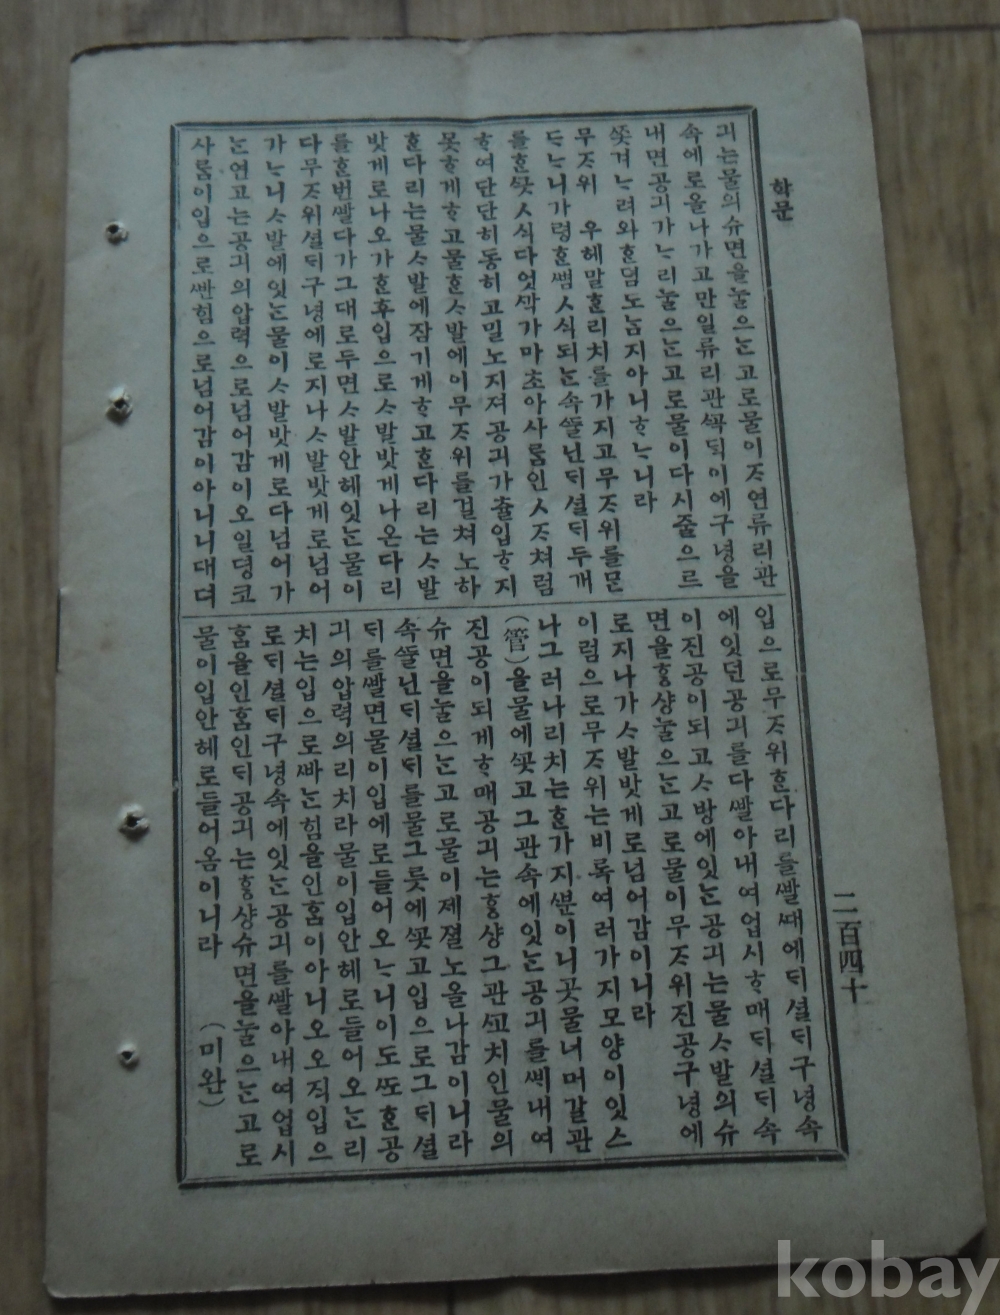 학문
긔는물의슈면을눌으는고로물이ᄌᆞ연류리관
속에로올나가고만일류리관ᄭᅩᆨ듸이에구녕을
내면공긔가ᄂᆞ리눌으는고로물이다시줄으르
ᄶᅩᆺ겨ᄂᆞ려와ᄒᆞᆫ덤도놉지아니ᄒᆞᄂᆞ니라
무ᄌᆞ위 우헤말ᄒᆞᆫ리치를가지고무ᄌᆞ위를ᄆᆞᆫ
ᄃᆞᄂᆞ니가령ᄒᆞᆫᄲᅧᆷㅅ식되ᄂᆞᆫ속ᄯᅮᆯ닌ᄃᆡ셜ᄃᆡ두개
를ᄒᆞᆫᄭᅳᆺㅅ식다엇ᄭᅡᆨ가마초아사ᄅᆞᆷ인ㅅᄌᆞ쳐럼
ᄒᆞ여단단히동히고밀노지져공긔가츌입ᄒᆞ지
못ᄒᆞ게ᄒᆞ고물ᄒᆞᆫㅅ발에이무ᄌᆞ위를걸쳐노하
ᄒᆞᆫ다리는물ㅅ발에잠기게ᄒᆞ고ᄒᆞᆫ다리는ㅅ발
밧게로나오가ᄒᆞᆫ후입으로ㅅ발밧게나온다리
를ᄒᆞᆫ번ᄲᅡᆯ다가그대로두면ㅅ발안헤잇ᄂᆞᆫ물이
다무ᄌᆞ위셜ᄃᆡ구녕에로지나ㅅ발밧게로넘어
가ᄂᆞ니ㅅ발에잇ᄂᆞᆫ물이ㅅ발밧게로다넘어가
ᄂᆞᆫ연고는공긔의압력으로넘어감이오일뎡코
사ᄅᆞᆷ이입으로ᄲᅡᆫ힘으로넘어감이아니니대뎌
입으로무ᄌᆞ위ᄒᆞᆫ다리를ᄲᅡᆯ때에ᄃᆡ셜ᄃᆡ구녕속
에잇던공긔를다ᄲᅡᆯ아내여업시ᄒᆞ매ᄃᆡ셜ᄃᆡ속
이진공이되고ㅅ방에잇ᄂᆞᆫ공긔는물ㅅ발의슈
면을ᄒᆞᆼ샹눌으ᄂᆞᆫ고로물이무ᄌᆞ위진공구녕에
로지나가ㅅ발밧게로넘어감이니라
이럼으로무ᄌᆞ위는비록여러가지모양이잇스
나그러나리치는ᄒᆞᆫ가지ᄲᅮᆫ이니곳물너머갈관
(管)을물에ᄭᅩᆺ고그관속에잇ᄂᆞᆫ공긔를ᄲᅢ내여
진공이되게ᄒᆞ매공긔는ᄒᆞᆼ샹그관ᄭᅩ치인물의
슈면을눌으ᄂᆞᆫ고로물이제졀노올나감이니라
속ᄯᅮᆯ닌ᄃᆡ셜ᄃᆡ를물그릇에ᄭᅩᆺ고입으로그ᄃᆡ셜
ᄃᆡ를ᄲᅡᆯ면물이입에로들어오ᄂᆞ니이도ᄯᅩᄒᆞᆫ공
긔의압력의리치라물이입안헤로들어오ᄂᆞᆫ리
치는입으로ᄲᅡᄂᆞᆫ힘을인홈이아니오오직입으
로ᄃᆡ셜ᄃᆡ구녕속에잇ᄂᆞᆫ공긔를ᄲᅡᆯ아내여업시
홈을인홈인ᄃᆡ공긔는ᄒᆞᆼ샹슈면을눌으ᄂᆞᆫ고로
물이입안헤로들어옴이니라 (미완)
二百四十
kobay